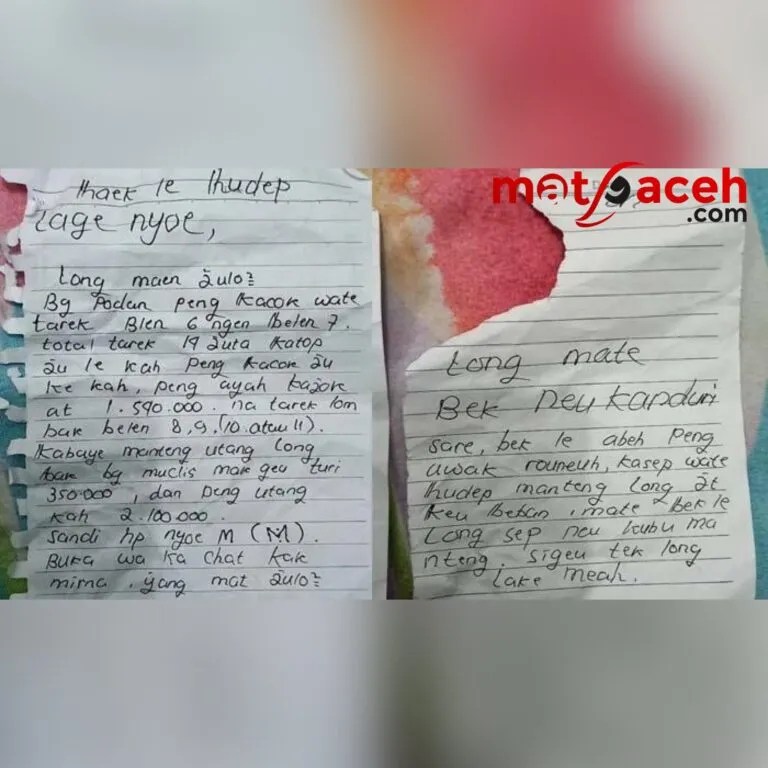 thaek le thudep
lage nyoe,
Long maen Julo²
Bg Podan peng kacok wate
tarek Blen 6 ngen belen 7.
total tarek 19 Juta katop
Ju le kah peng kacok Ju
ke kah, peng ayah kajok
at 1.590.000. na tarek lom
bak belen 8, 9, (10 atau 11).
kabaye manteng utang long
bak bg muclis mak geu turi
350.000, dan peng utang
kah 2.100.000.
sandi hp nyoe M (M).
Buka wa ka chat kak
mirna. yang mat Julo²
metroaceh
.com
Long mate
Bek neu kanduri
sare, bek le abeh peng
awak rouneuh, kasep wate
thudep manteng long Jt
keu beban, mate bek le
Long sep neu kubu ma
nteng. sigeu tek long
lake meah.